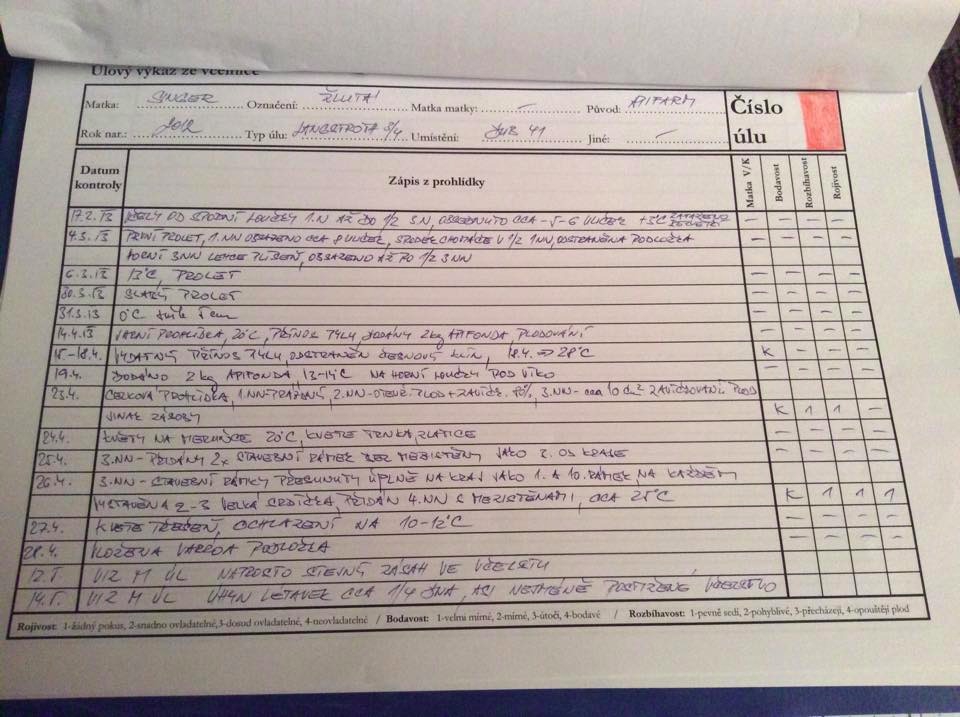 Úlový výkaz ze včelnice
Matka: SINGER Označení: ŽLUTÁ Matka matky: – Původ: APIFARM
Číslo úlu
Rok nar.: 2012 Typ úlu: LANGSTROTH 3/4 Umístění: DUB 41 Jiné: –
Datum kontroly Zápis z prohlídky Matka V/K Bodavost Rozbíhavost Rojivost
17.2.13 VČELY OD SPODNÍ LOUČKY 1.N AŽ DO 1/2 3.N, OBSEDNUTO CCA 5-6 ULIČEK +5°C ZATAŽENO – – – –
4.3.13 PRVNÍ PROLET, 1.NN OBSAZENO CCA 8 ULIČEK, SPODEK CHOMÁČE V 1/2 1NN, ODSTRANĚNA PODLOŽKA – – – –
HORNÍ 3NN LEHCE PLÍSEŇ, OBSAZENO AŽ PO 1/2 3NN
6.3.13 13°C, PROLET – – – –
30.3.13 SLABÝ PROLET – – – –
31.3.13 0°C – – – –
14.4.13 JARNÍ PROHLÍDKA, 20°C, PŘÍNOS PYLU, DODÁNY 2kg APIFONDA, PLODOVÁNÍ – – – –
15-18.4. VYDATNÝ PŘÍNOS PYLU, ODSTRANĚN ČESNOVÝ KLÍN, 18.4. => 28°C K – – –
19.4. DODÁNO 2 kg APIFONDA, 13-14°C NA HORNÍ LOUČKY POD VÍKO – – – –
23.4. CELKOVÁ PROHLÍDKA, 1.NN-PRÁZDNÝ, 2.NN-OTEVŘ. PLOD + ZAVÍČK. 3.NN- cca 10 d² ZAVÍČKOVANÍ PLOD
JINAK ZÁSOBY K 1 1 –
24.4. KVĚTY NA MERUŇCE 20°C, KVETE TRNKA, ZLATICE – – – –
25.4. 3.NN- PŘIDÁNY 2x STAVEBNÍ RÁMEK BEZ MEZISTĚNY JAKO 2. OD KRAJE – – – –
26.4. 3.NN- STAVEBNÍ RÁMKY PŘESUNUTY ÚPLNĚ NA KRAJ JAKO 1. A 10. RÁMEK, NA KAŽDÉM
VYSTAVĚNA 2-3 VELKÁ SRDÍČKA, PŘIDÁN 4.NN S MEZISTĚNAMI, CCA 25°C K 1 1 1
27.4. KVETE TŘEŠEŇ, OCHLAZENÍ NA 10-12°C – – – –
28.4. VLOŽENA VARROA PODLOŽKA – – – –
12.5. VIZ M ÚL NAPROSTO STEJNÝ ZÁSAH VE VČELSTVU
14.5. VIZ M ÚL ÚHYN LÉTAVEK CCA 1/4 DNA, ASI NEJMÉNĚ POSTIŽENÉ VČELSTVO
Rojivost: 1-žádný pokus, 2-snadno ovladatelné, 3-dosud ovladatelné, 4-neovladatelné / Bodavost: 1-velmi mírné, 2-mírné, 3-útočí, 4-bodavé / Rozbíhavost: 1-pevně sedí, 2-pohyblivé, 3-přecházejí, 4-opouštějí plod